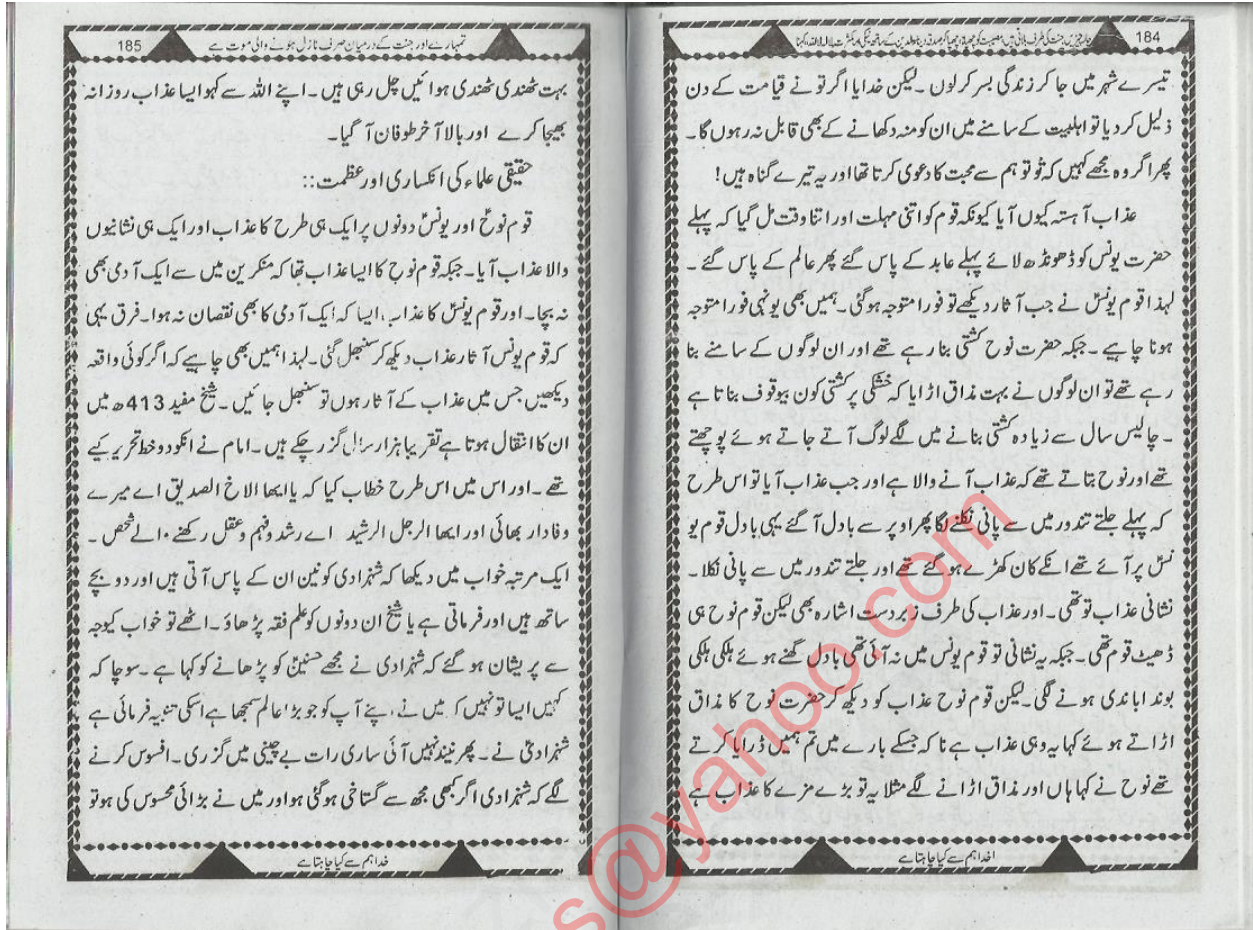 184
چار چیزیں جنت کی طرف بلاتی ہیں مصیبت کو چھپانا، چھپا کر صدقہ دینا، والدین کے ساتھ نیکی اور کثرت سے لا الہ الا اللہ کہنا
تیسرے شہر میں جا کر زندگی بسر کرلوں ۔ لیکن خدایا اگر تو نے قیامت کے دن
ذلیل کر دیا تو اہلبیت کے سامنے میں ان کو منہ دکھانے کے بھی قابل نہ رہوں گا ۔
پھر اگر وہ مجھے کہیں کہ تُو تو ہم سے محبت کا دعوی کرتا تھا اور یہ تیرے گناہ ہیں !
عذاب آہستہ کیوں آیا کیونکہ قوم کو اتنی مہلت اور اتنا وقت مل گیا کہ پہلے
حضرت یونس کو ڈھونڈھ لائے پہلے عابد کے پاس گئے پھر عالم کے پاس گئے ۔
لہذا قوم یونسؑ نے جب آثار دیکھے تو فورا متوجہ ہوگئی ۔ ہمیں بھی یونہی فورا متوجہ
ہونا چاہیے ۔ جبکہ حضرت نوح کشتی بنا رہے تھے اور ان لوگوں کے سامنے بنا
رہے تھے تو ان لوگوں نے بہت مذاق اڑایا کہ خشکی پر کشتی کون بیوقوف بناتا ہے
۔ چالیس سال سے زیادہ کشتی بنانے میں لگے لوگ آتے جاتے ہوئے پوچھتے
تھے اور نوح بتاتے تھے کہ عذاب آنے والا ہے اور جب عذاب آیا تو اس طرح
کہ پہلے جلتے تندور میں سے پانی نکلنے لگا پھر اوپر سے بادل آگئے یہی بادل قوم یو
نسؑ پر آئے تھے انکے کان کھڑے ہو گئے تھے اور جلتے تندور میں سے پانی نکلا ۔
نشانی عذاب تو تھی ۔ اور عذاب کی طرف زبردست اشارہ بھی لیکن قوم نوح ہی
ڈھیٹ قوم تھی ۔ جبکہ یہ نشانی تو قوم یونس میں نہ آئی تھی بادل گھنے ہوئے ہلکی ہلکی
بوندا باندی ہونے لگی ۔ لیکن قوم نوح عذاب کو دیکھ کر حضرت نوح کا مذاق
اڑاتے ہوئے کہا یہ وہی عذاب ہے نا کہ جسکے بارے میں تم ہمیں ڈرایا کرتے
تھے نوح نے کہا ہاں اور مذاق اڑانے لگے مثلا یہ تو بڑے مزے کا عذاب ہے
خدا ہم سے کیا چاہتا ہے
185
تمہارے اور جنت کے درمیان صرف نازل ہونے والی موت ہے
بہت ٹھنڈی ٹھنڈی ہوائیں چل رہی ہیں ۔ اپنے اللہ سے کہو ایسا عذاب روزانہ
بھیجا کرے اور بالا آخر طوفان آ گیا ۔
حقیقی علماء کی انکساری اور عظمت ::
قوم نوحؑ اور یونسؑ دونوں پر ایک ہی طرح کا عذاب اور ایک ہی نشانیوں
والا عذاب آیا ۔ جبکہ قوم نوح کا ایسا عذاب تھا کہ منکرین میں سے ایک آدمی بھی
نہ بچا ۔ اور قوم یونسؑ کا عذاب ایسا کہ ایک آدمی کا بھی نقصان نہ ہوا ۔ فرق یہی
کہ قوم یونس آثار عذاب دیکھ کر سنبھل گئی ۔ لہذا ہمیں بھی چاہیے کہ اگر کوئی واقعہ
دیکھیں جس میں عذاب کے آثار ہوں تو سنبھل جائیں ۔ شیخ مفید 413ھ میں
ان کا انتقال ہوتا ہے تقریبا ہزار سال گزر چکے ہیں ۔ امام نے انکو دو خط تحریر کیے
تھے ۔ اور اس میں اس طرح خطاب کیا کہ یا ایھا الاخ الصدیق اے میرے
وفادار بھائی اور ایھا الرجل الرشید اے رشد و فہم و عقل رکھنے والے شخص ۔
ایک مرتبہ خواب میں دیکھا کہ شہزادی کونین ان کے پاس آتی ہیں اور دو بچے
ساتھ ہیں اور فرماتی ہے یا شیخ ان دونوں کو علم فقہ پڑھاؤ ۔ اٹھے تو خواب کیوجہ
سے پریشان ہو گئے کہ شہزادی نے مجھے حسنینؑ کو پڑھانے کو کہا ہے ۔ سوچا کہ
کہیں ایسا تو نہیں کہ میں نے اپنے آپ کو جو بڑا عالم سمجھا ہے اسکی تنبیہ فرمائی ہے
شہزادیؑ نے ۔ پھر نیند نہیں آئی ساری رات بے چینی میں گزری ۔ افسوس کرنے
لگے کہ شہزادی اگر کبھی مجھ سے گستاخی ہوگئی ہو اور میں نے بڑائی محسوس کی ہو تو
خدا ہم سے کیا چاہتا ہے
s@yahoo.com